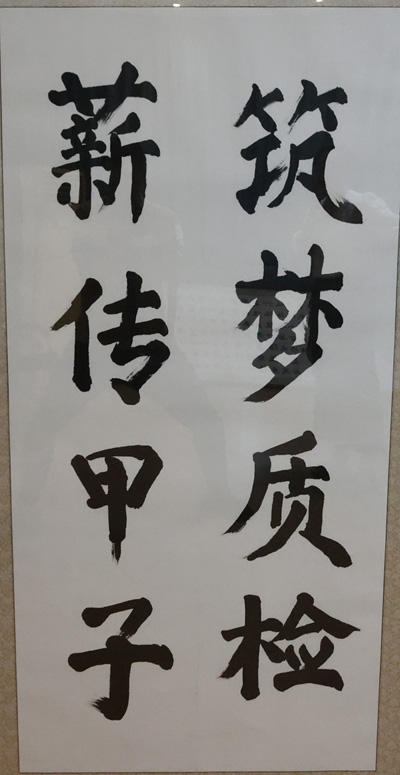 筑梦质检
薪传甲子